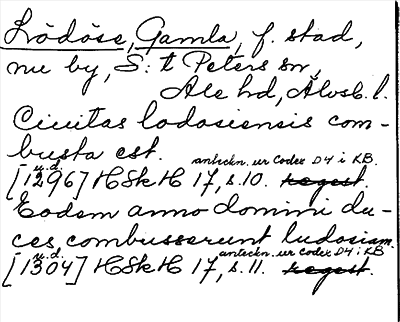 Lödöse, Gamla, f. stad,
nu by, S:t Peters sn,
Ale hd, Älvsb. l.
Ciuitas lodosiensis com-
busta est.
u.d. anteckn. ur Codex D4 i KB.
[1296] HSkH 17, s. 10. regest.
Eodem anno domini du-
ces, combusserunt ludosiam.
u.d. anteckn. ur Codex D4 i KB
[1304] HSkH 17, s. 11. regest.